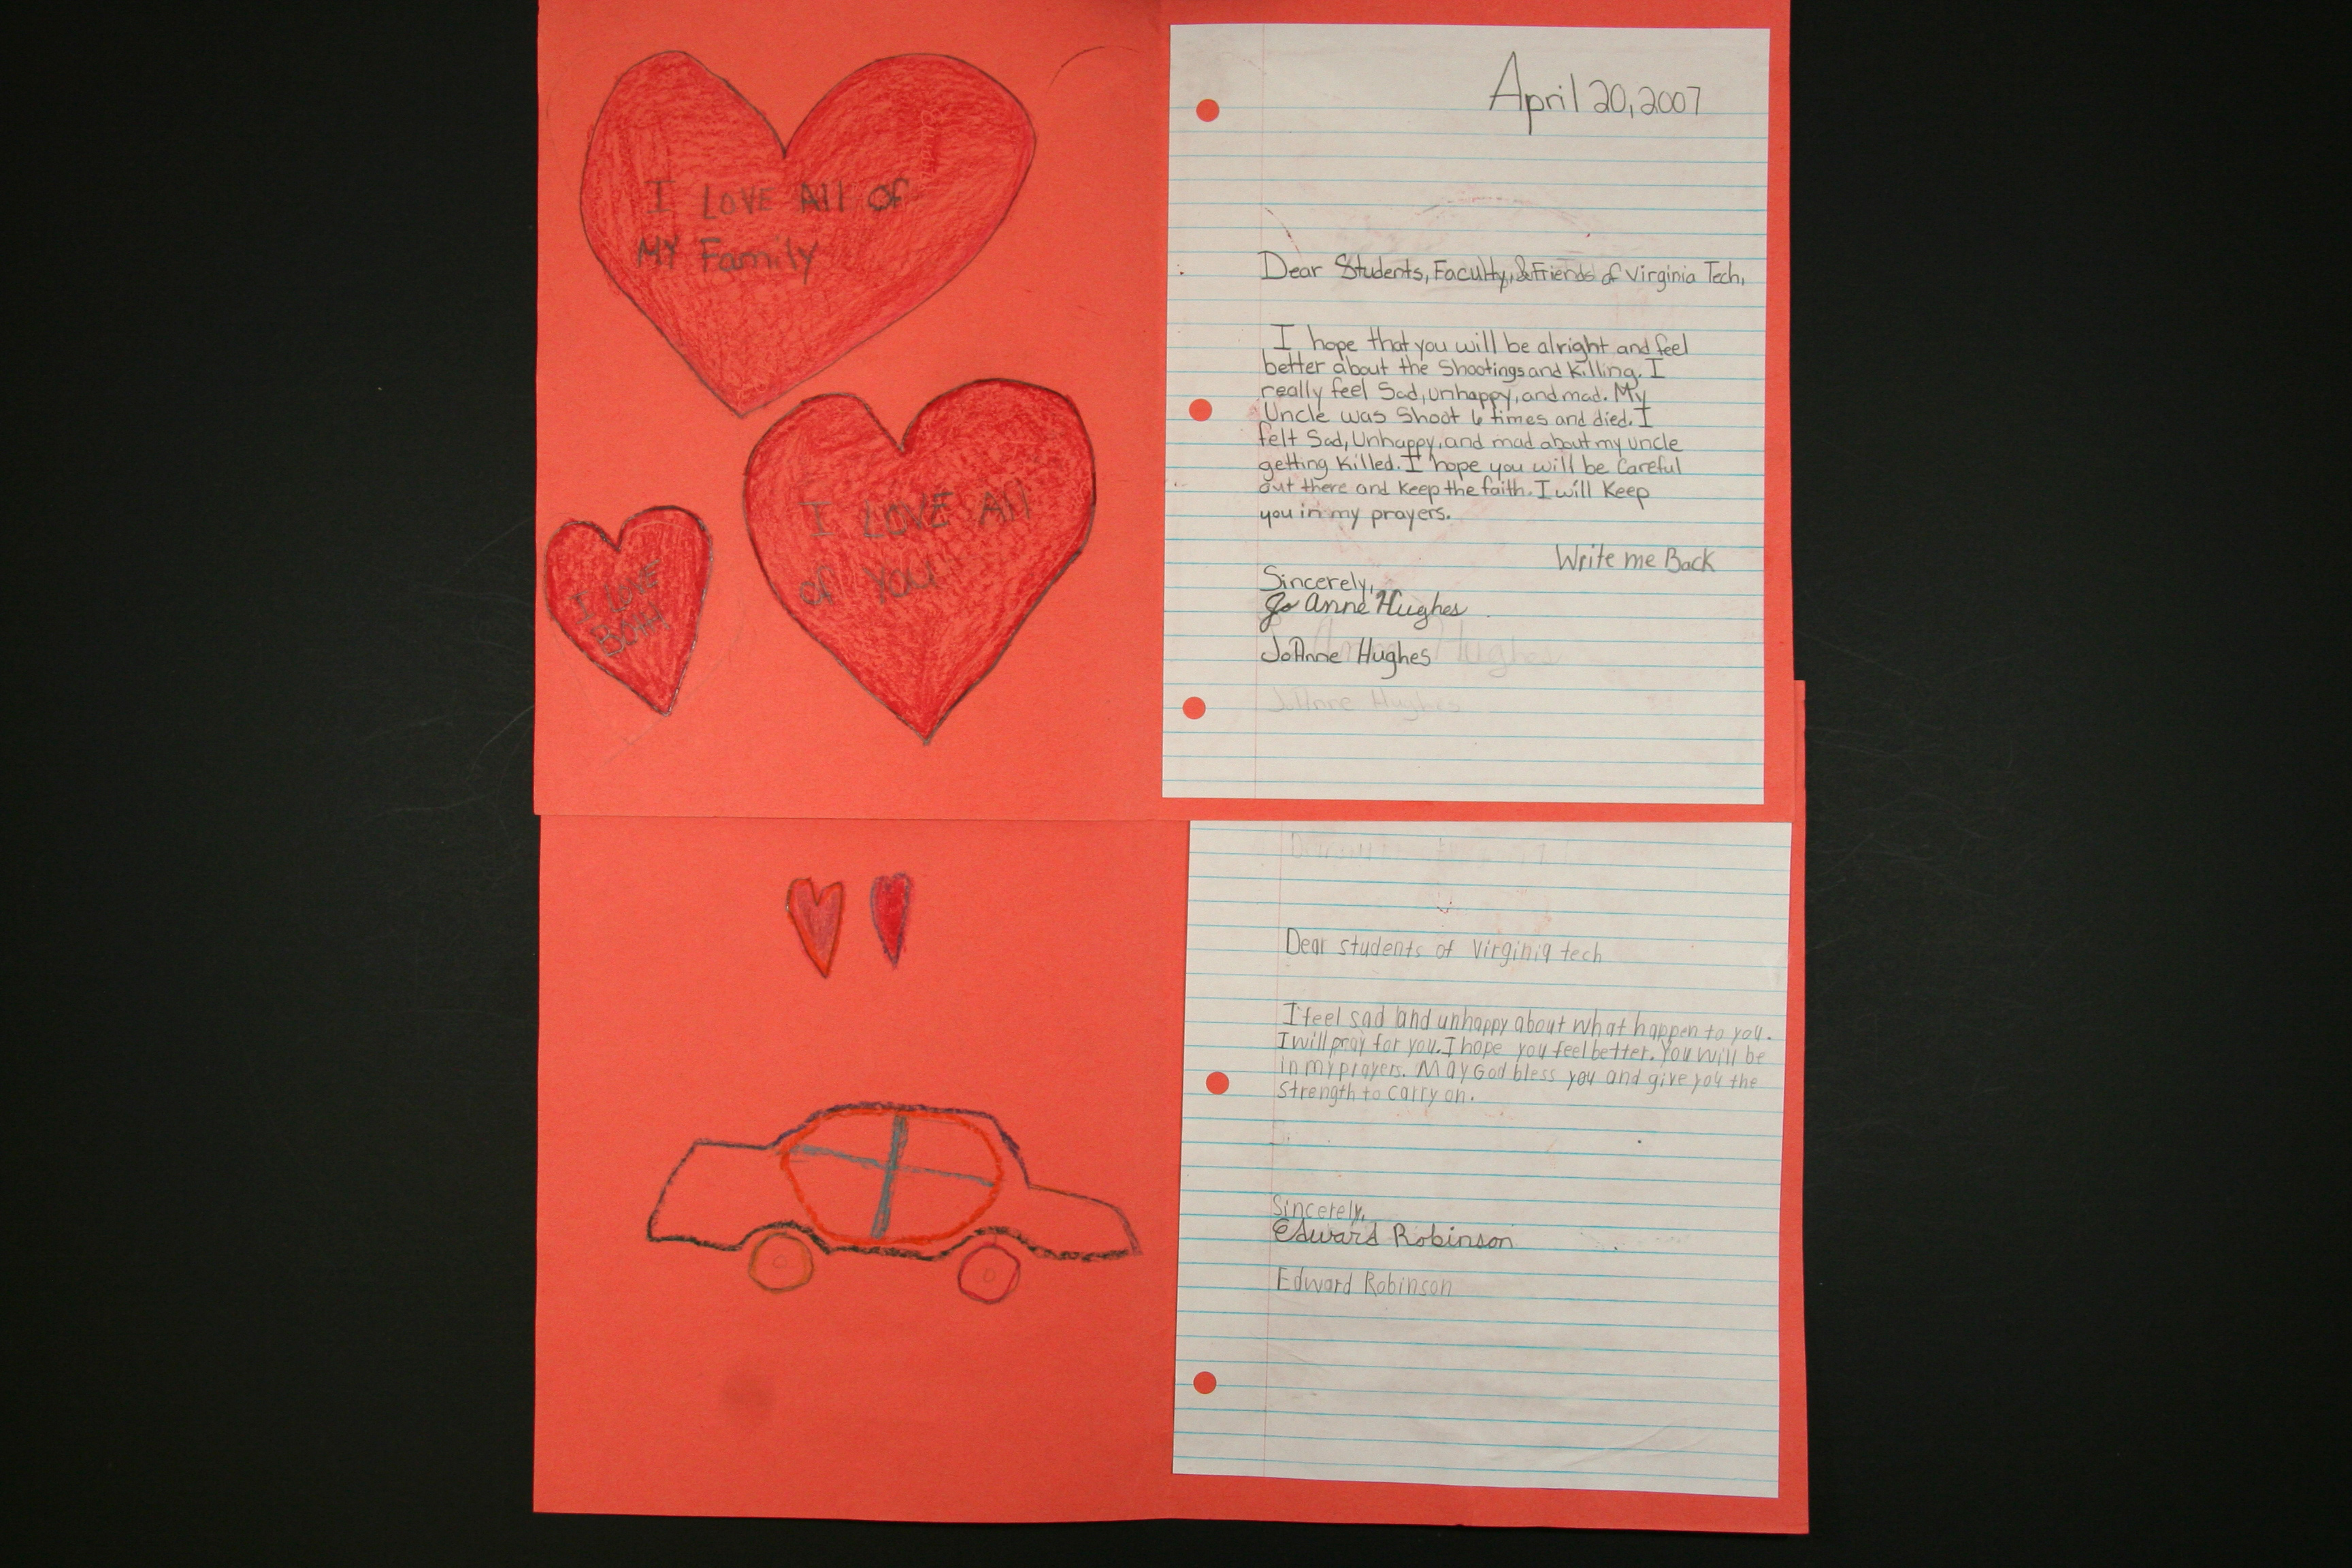 I LOVE All of
MY Family
I LOVE All
of You
I LOVE
BOTH
April 20, 2007
Dear Students, Faculty, & Friends of Virginia Tech,
I hope that you will be alright and feel
better about the Shootings and Killing. I
really feel Sad, unhappy, and mad. My
Uncle was Shoot 6 times and died. I
felt Sad, Unhappy, and mad about my uncle
getting Killed. I hope you will be Careful
out there and Keep the faith. I will Keep
you in my prayers.
Write me Back
Sincerely,
Jo Anne Hughes
JoAnne Hughes
JoAnne Hughes
Dear students of Virginia tech
I feel sad and unhappy about what happen to you.
I will pray for you. I hope you feel better. You will be
in my prayers. May God bless you and give you the
strength to carry on.
Sincerely,
Edward Robinson
Edward Robinson